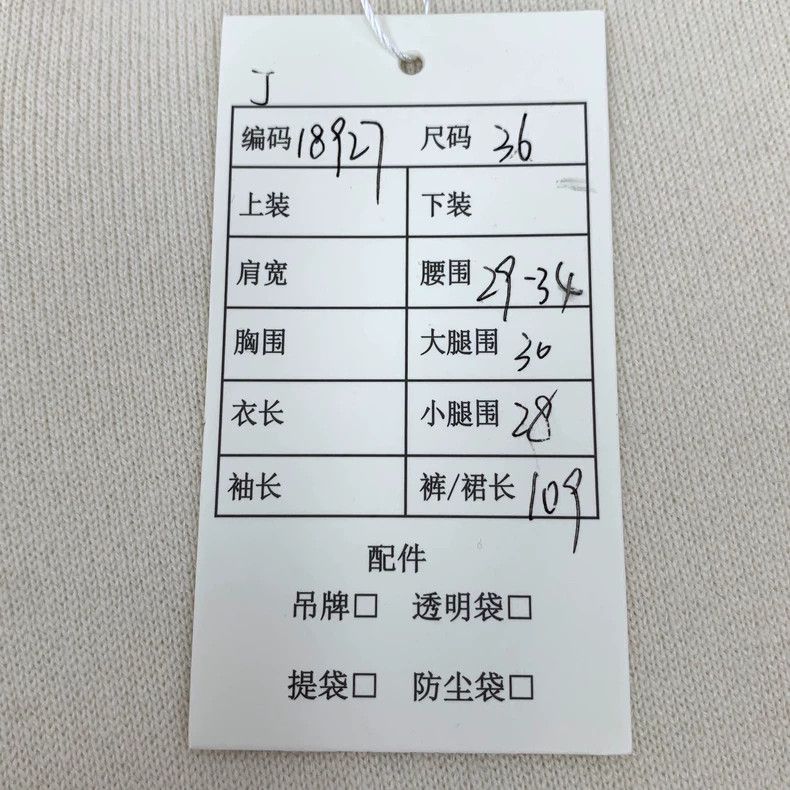 J
编码18927 尺码 36
上装 下装
肩宽 腰围 29-34
胸围 大腿围 30
衣长 小腿围 28
袖长 裤/裙长 109
配件
吊牌□ 透明袋□
提袋□ 防尘袋□